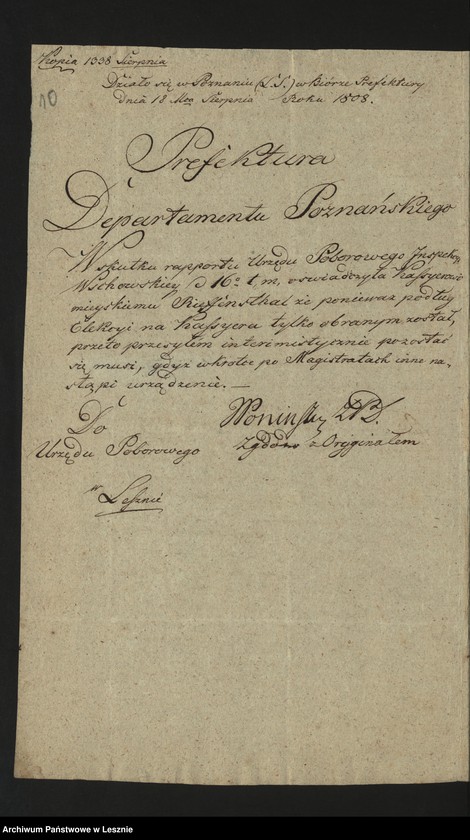 Kopia 1338 Sierpnia
Działo się w Poznaniu (L.S.) w Biórze Prefektury
dnia 18 Mca Sierpnia Roku 1808.
10
Prefektura
Departamentu Poznańskiego
W skutku rapportu Urzędu Poborowego Inspekcyi
Wschowskiey d 16o t. m. oświadczyła Kassyerowi
mieyskiemu że ponieważ podług
Elekcyi na Kassyera tylko obranym został,
przeto przesyłem interimistycznie pozostać
się musi, gdyż wkrótce po Magistratach inne na-
stąpi urządzenie. —
Do
Urzędu Poborowego
w Lesznie
Poninsky
Zgodno z Oryginałem
Archiwum Państwowe w Lesznie